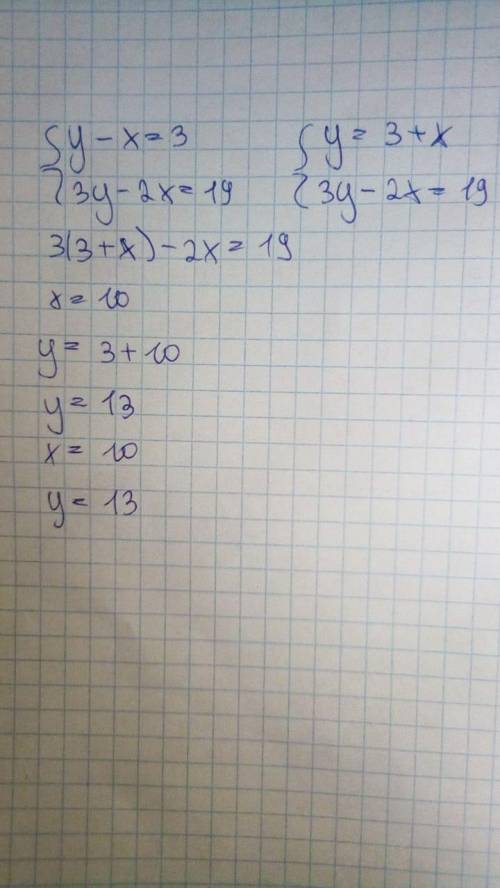 { y - x = 3 { y = 3 + x
{ 3y - 2x = 19 { 3y - 2x = 19
3(3 + x) - 2x = 19
x = 10
y = 3 + 10
y = 13
x = 10
y = 13